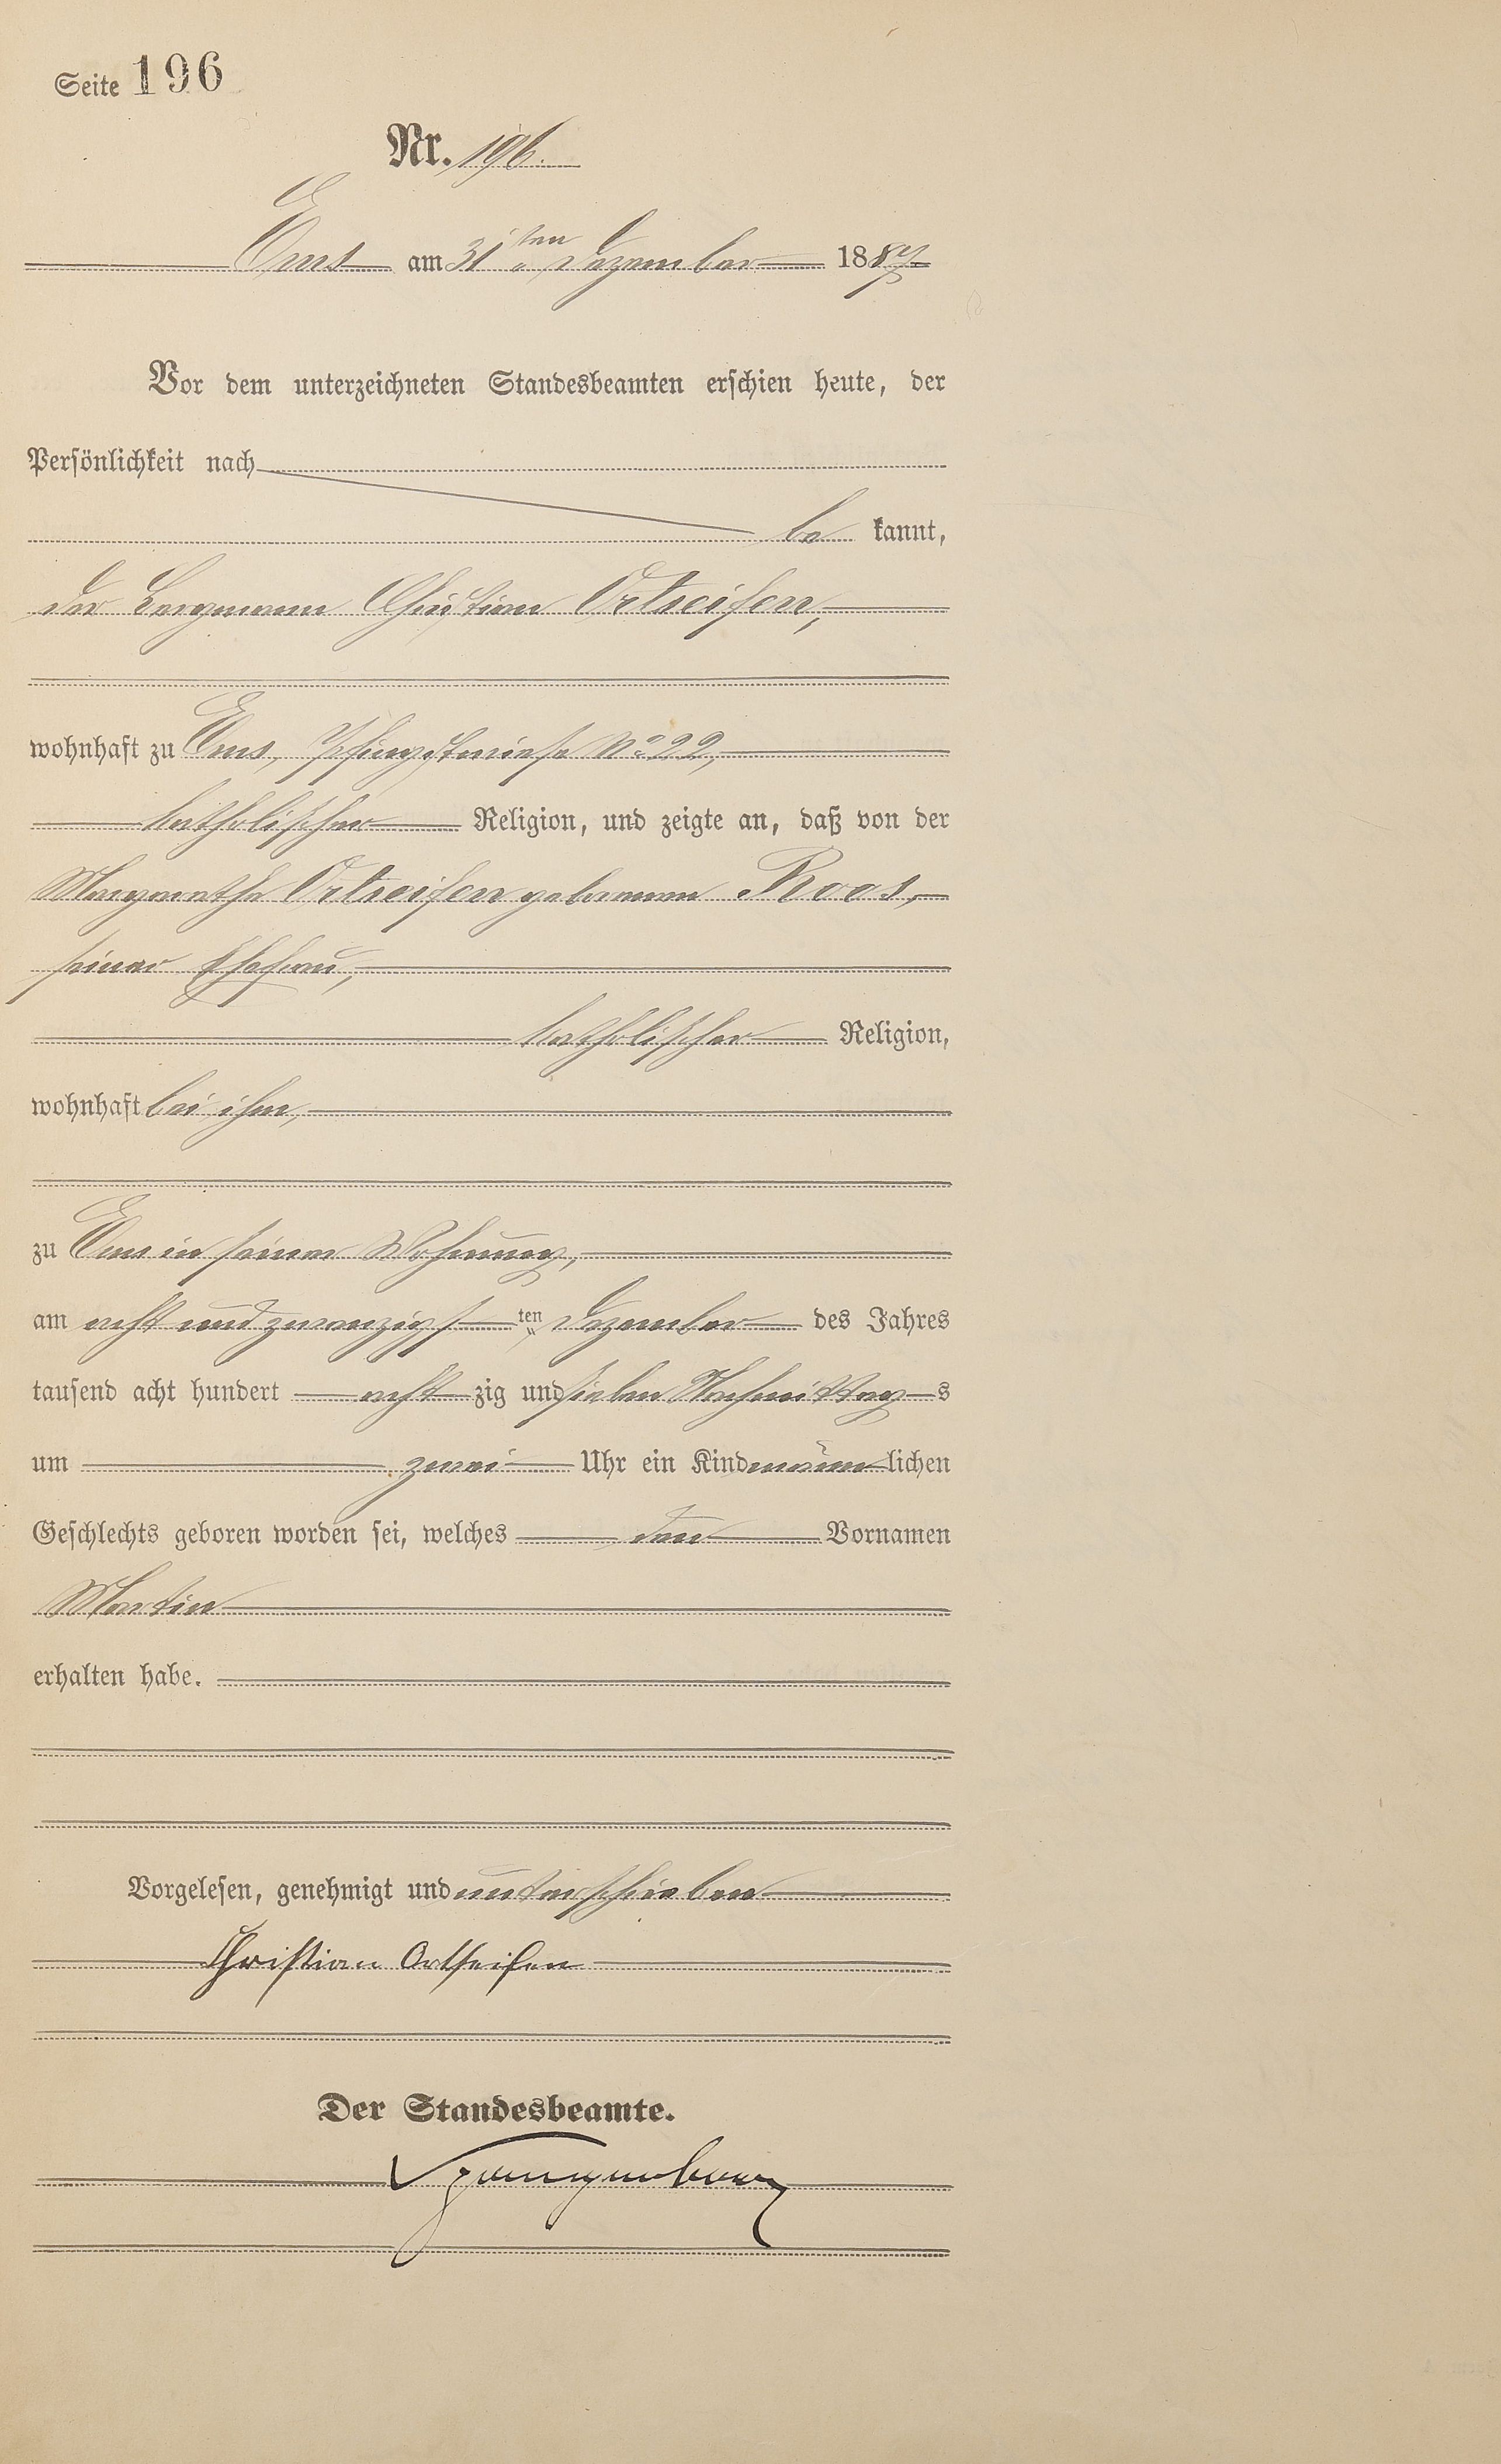 Seite 196
Nr. 196.
Ems am 31ten Dezember 1887
Vor dem unterzeichneten Standesbeamten erschien heute, der
Persönlichkeit nach
be kannt,
der Bergmann Christian Ortseifen,
wohnhaft zu Ems, Pfingstwiese No 22,
katholischer Religion, und zeigte an, daß von der
Margaretha Ortseifen geborenen Roos,
seiner Ehefrau,
katholischer Religion,
wohnhaft bei ihm,
zu Ems in seiner Wohnung,
am acht und zwanzigsten Dezember des Jahres
tausend acht hundert acht zig und sieben Nachmittags
um zwei Uhr ein Kind männlichen
Geschlechts geboren worden sei, welches den Vornamen
Martin
erhalten habe.
Vorgelesen, genehmigt und unterschrieben
Christian Ortseifen
Der Standesbeamte.
Spangenberg